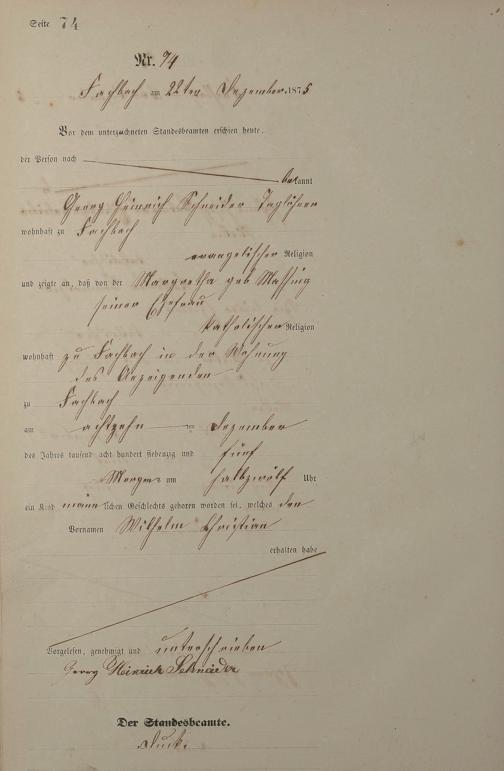 Seite 74
Nr. 74
Fachbach am 22ten Dezember 1875
Vor dem unterzeichneten Standesbeamten erschien heute,
der Person nach
bekannt
Georg Heinrich Schneider Taglöhner
wohnhaft zu Fachbach
evangelischer Religion
und zeigte an, daß von der Margretha geb Massing
seiner Ehefrau
katholischer Religion
wohnhaft zu Fachbach in der Wohnung
des Anzeigenden
zu Fachbach
am achtzehn ten Dezember
des Jahres tausend acht hundert siebenzig und fünf
Morgens um halbzwölf Uhr
ein Kind männlichen Geschlechts geboren worden sei, welches den
Vornamen Wilhelm Christian
erhalten habe
Vorgelesen, genehmigt und unterschrieben
Georg Heinrich Schneider
Der Standesbeamte.